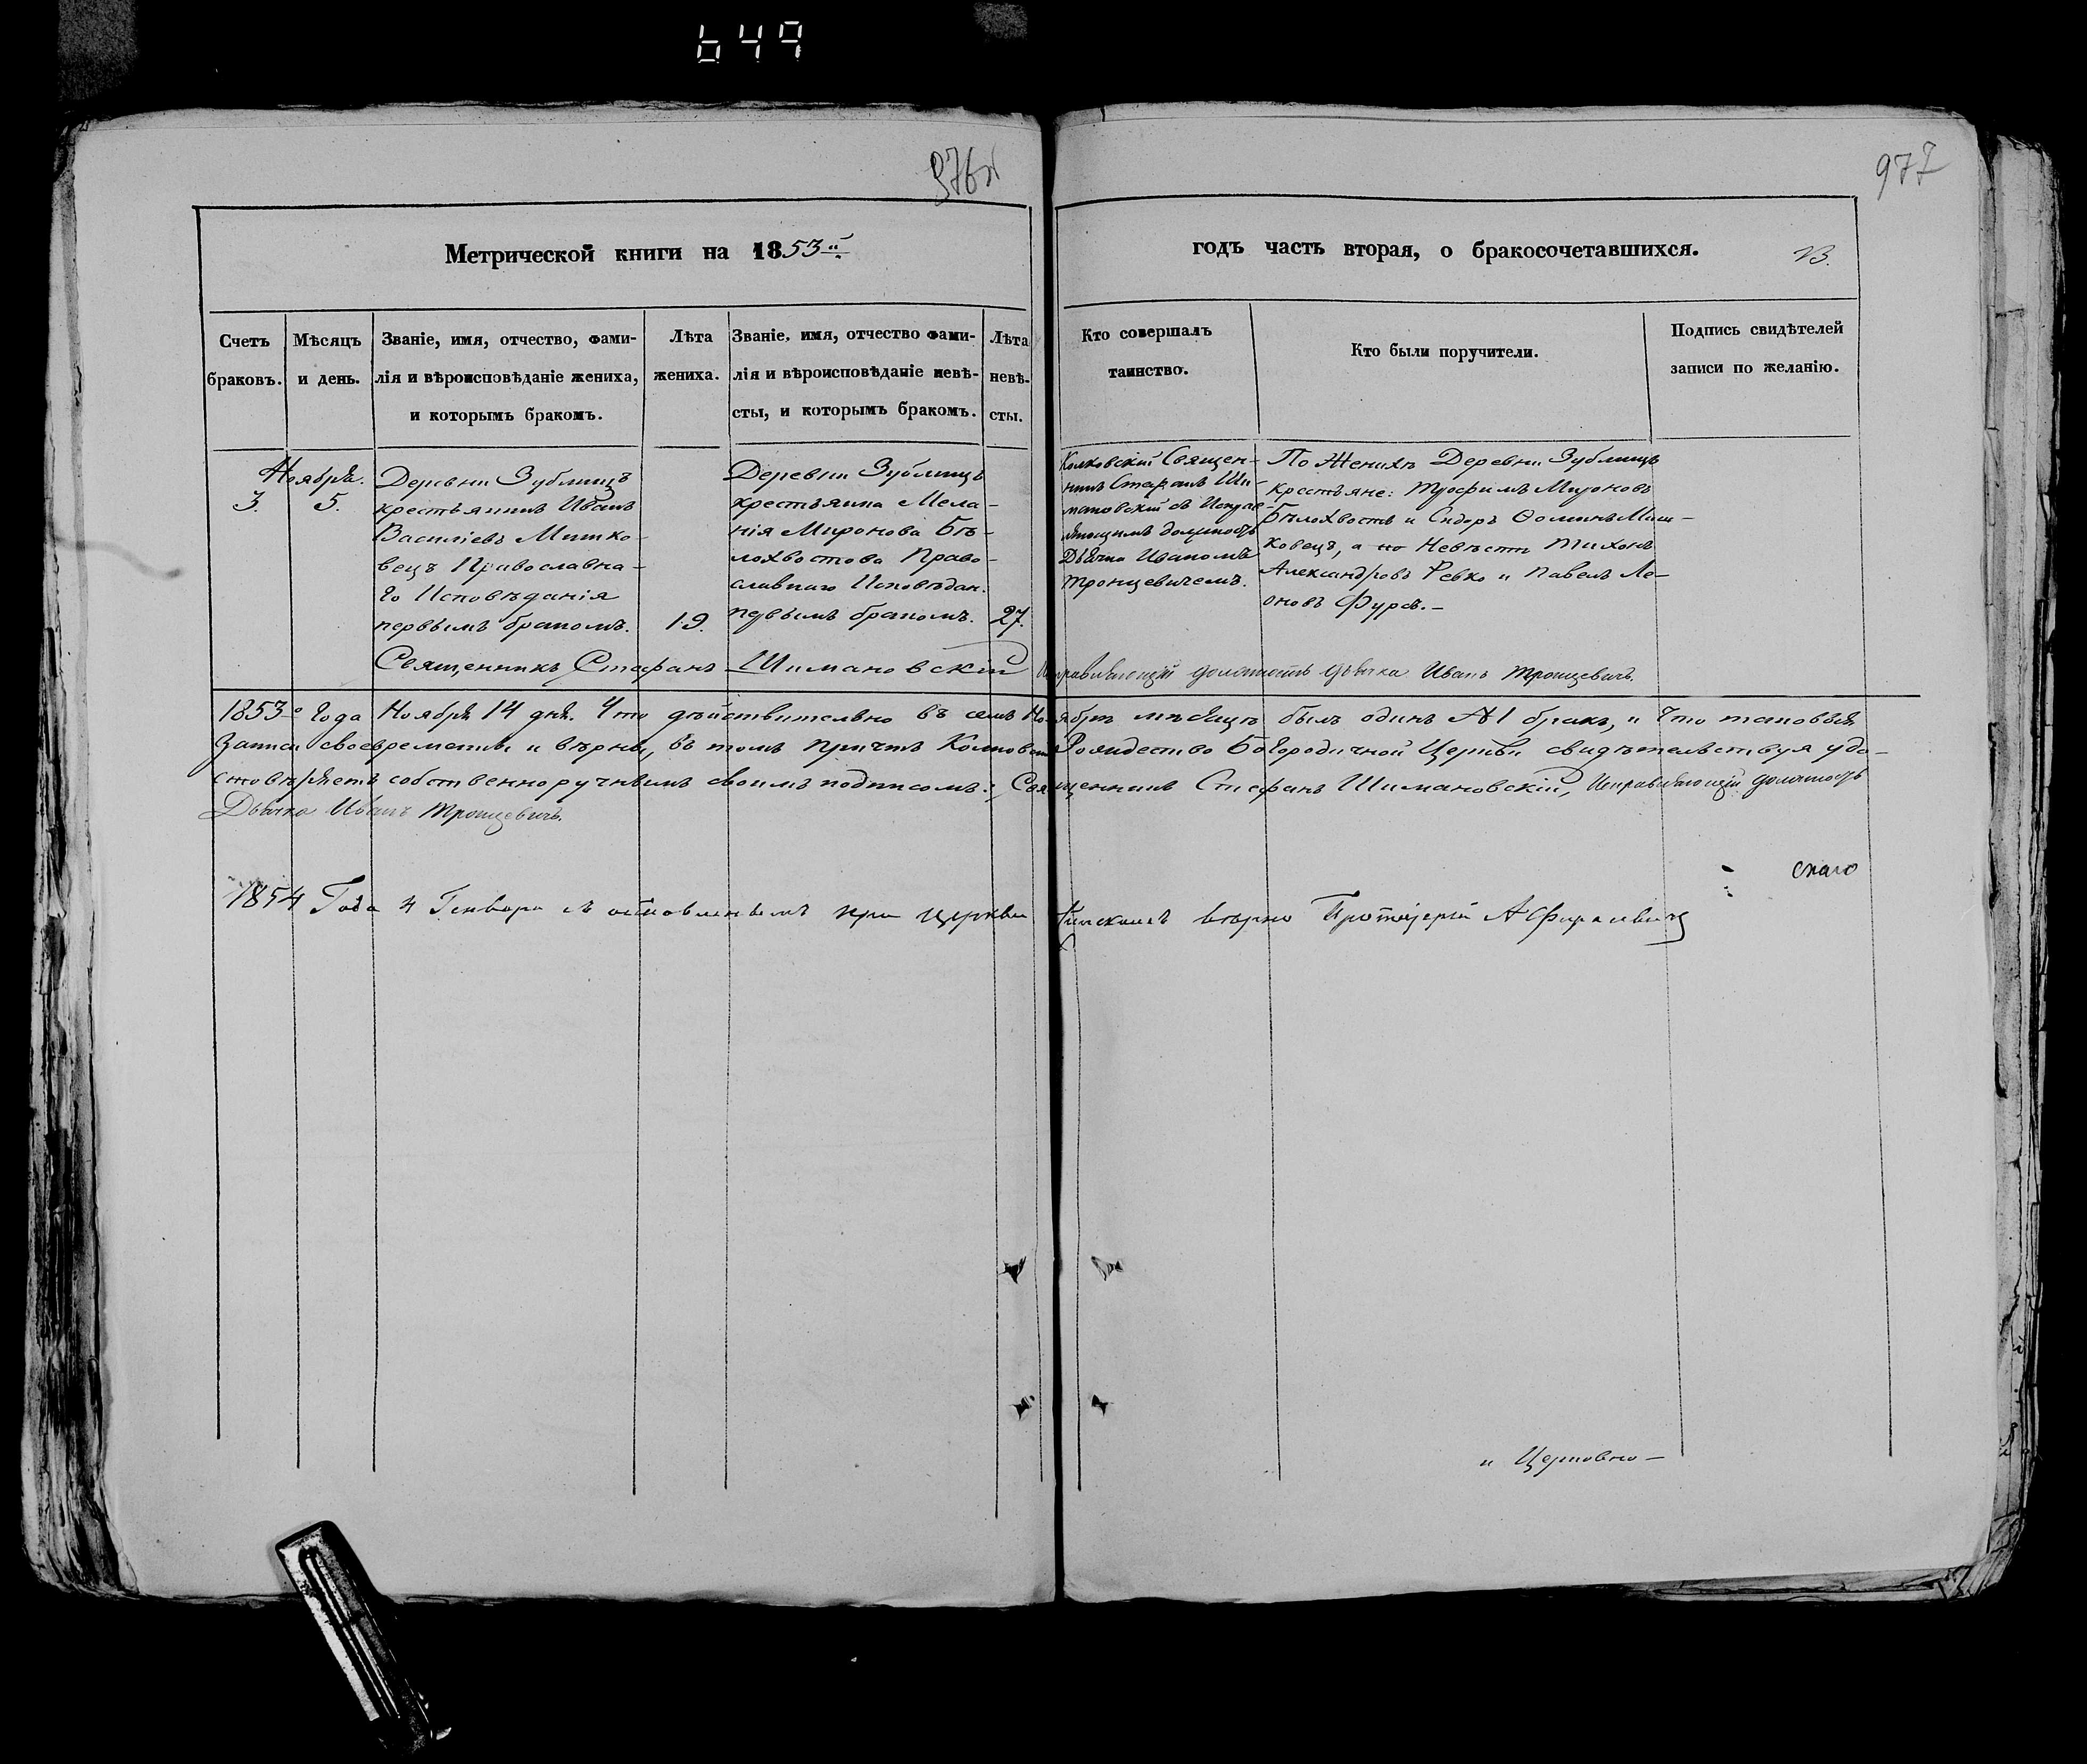 649
976
977
Метрической книги на 1853й
годъ часть вторая, о бракосочетавшихся.
Счетъ
браковъ.
Мѣсяцъ
и день.
Званіе, имя, отчество, фами-
лія и вѣроисповѣданіе жениха,
и которымъ бракомъ.
Лѣта
жениха.
Званіе, имя, отчество фами-
лія и вѣроисповѣданіе невѣ-
сты, и которымъ бракомъ.
Лѣта
невѣ-
сты.
Кто совершалъ
таинство.
Кто были поручители.
Подпись свидѣтелей
записи по желанію.
3.
Ноября.
5.
Деревни Зублищъ
крестьянинъ Иванъ
Василіевъ Мишко-
вецъ Православна-
го Исповѣданія
первымъ бракомъ.
19.
Деревни Зублищъ
крестьянка Мела-
нія Миронова Бѣ-
лохвостова Право-
славнаго Исповѣдан.
первымъ бракомъ.
27.
Колковскій Священ-
никъ Стефанъ Ши-
мановскій съ Исправ-
ляющимъ должность
Дьячка Иваномъ
Тронцевичемъ.
По Женихѣ Деревни Зублищъ
крестьяне: Трофимъ Мироновъ
Бѣлохвостъ и Сидоръ Ѳоминъ Миш-
ковецъ, а по Невѣстѣ Тихонъ
Александровъ Ревко и Павелъ Ле-
оновъ Фурсъ.-
Священникъ Стефанъ Шимановскій Исправляющій должность дьячка Иванъ Тронцевичъ.
1853го Года Ноября 14 дня. Что дѣйствительно въ семъ Ноябрѣ мѣсяцѣ былъ одинъ №1 бракъ, и что таковыя
записи своевременны и вѣрны, въ томъ причтъ Колковской Рождество Богородичной Церкви свидѣтельствуя удо-
стовѣряетъ собственноручнымъ своимъ подписомъ: Священникъ Стефанъ Шимановскій, Исправляющій должность
Дьячка Иванъ Тронцевичъ.
скаго
1854 Года 4 Генваря съ При Церкви вѣрно Протоіерей
и Церковно-